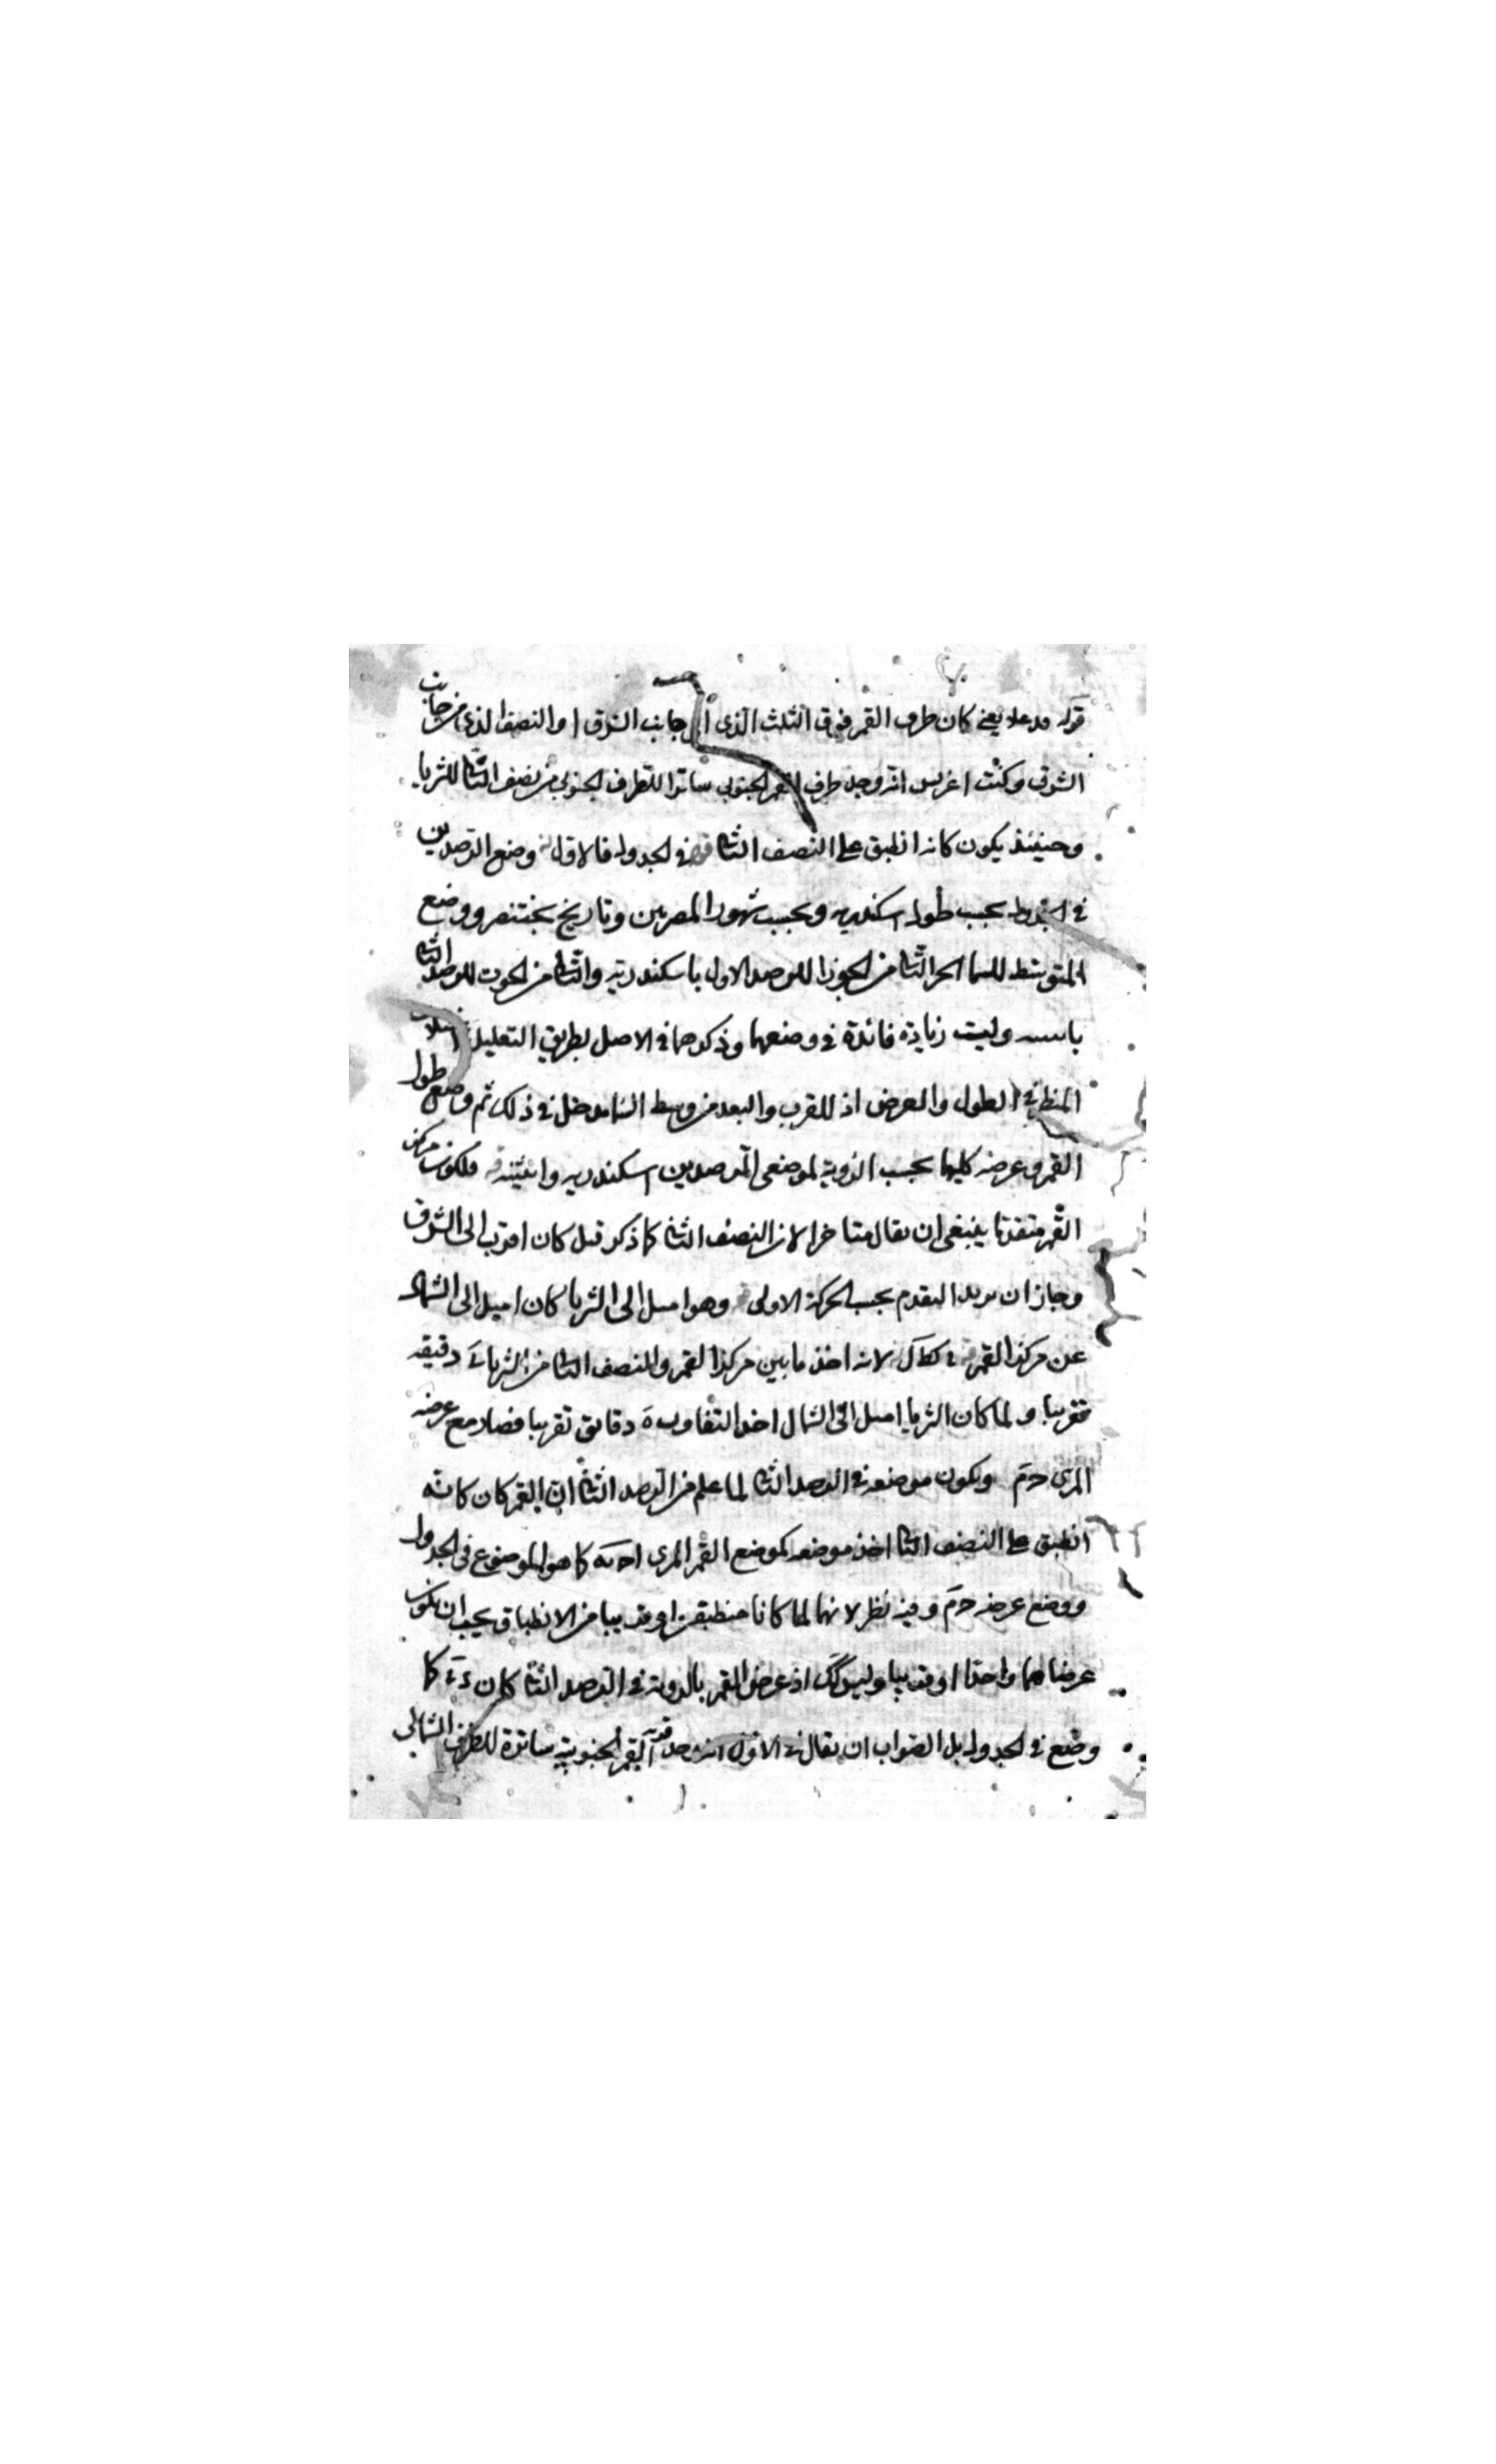 قوله قد علا يعني كان طرف القمر فوق الثلث الذي الى جانب الشرق او النصف الذي من جانب
الشرق وكتب اغربس انه وجد طرف القمر الجنوبي ساترا للطرف الجنوبي من نصف الثاني للثريا
وحينئذ يكون كانه انطبق على النصف الثاني في الجدول فالاول وضع الرصدين
في الجدول بحسب طول اسكندريه وبحسب شهور المصريين وتاريخ بختنصر ووضع
المتوسط للسما الجزء الثاني من الجوزا للرصد الاول باسكندرية والثاني من الحوت للرصد الثاني
وليت زيادة فائدة في وضعهما وذكرهما في الاصل بطريق التعليل
المنظر في الطول والعرض اذ للقرب والبعد من وسط السما مدخل في ذلك ثم وضع طول
القمر وعرضه كليهما بحسب الرؤية لموضعي الرصدين اسكندريه ولكون مركز
القمر متقدما ينبغي ان يقال متاخرا لان النصف الثاني كما ذكر قبل كان اقرب الى الشرق
وجاز ان يريد التقدم بحسب الحركة الاولى وهو اميل الى الثريا كان اميل الى الشمال
عن مركز القمر لانه اخذ ما بين مركز القمر والنصف الثاني من الثريا دقيقه
تقريبا ولما كان الثريا اميل الى الشمال اخذ التفاوت ه دقايق تقريبا فصار مع عرضه
المرئي ح م ويكون موضعه في الرصد الثاني لما علم من الرصد الثاني ان القمر كان كانه
انطبق على النصف الثاني اخذ موضعه كموضع القمر المرئي كما هو الموضوع في الجدول
ووضع عرضه ح م وفيه نظر لانهما لما كانا منطبقين او قريبا من الانطباق يجب ان يكون
عرضاهما واحدا او قريبا وليس كك اذ عرض القمر بالرؤية في الرصد الثاني كان كما
وضع في الجدول بل الصواب ان يقال في الاول انه وجد القمر الجنوبية ساترة للطرف الشمالي